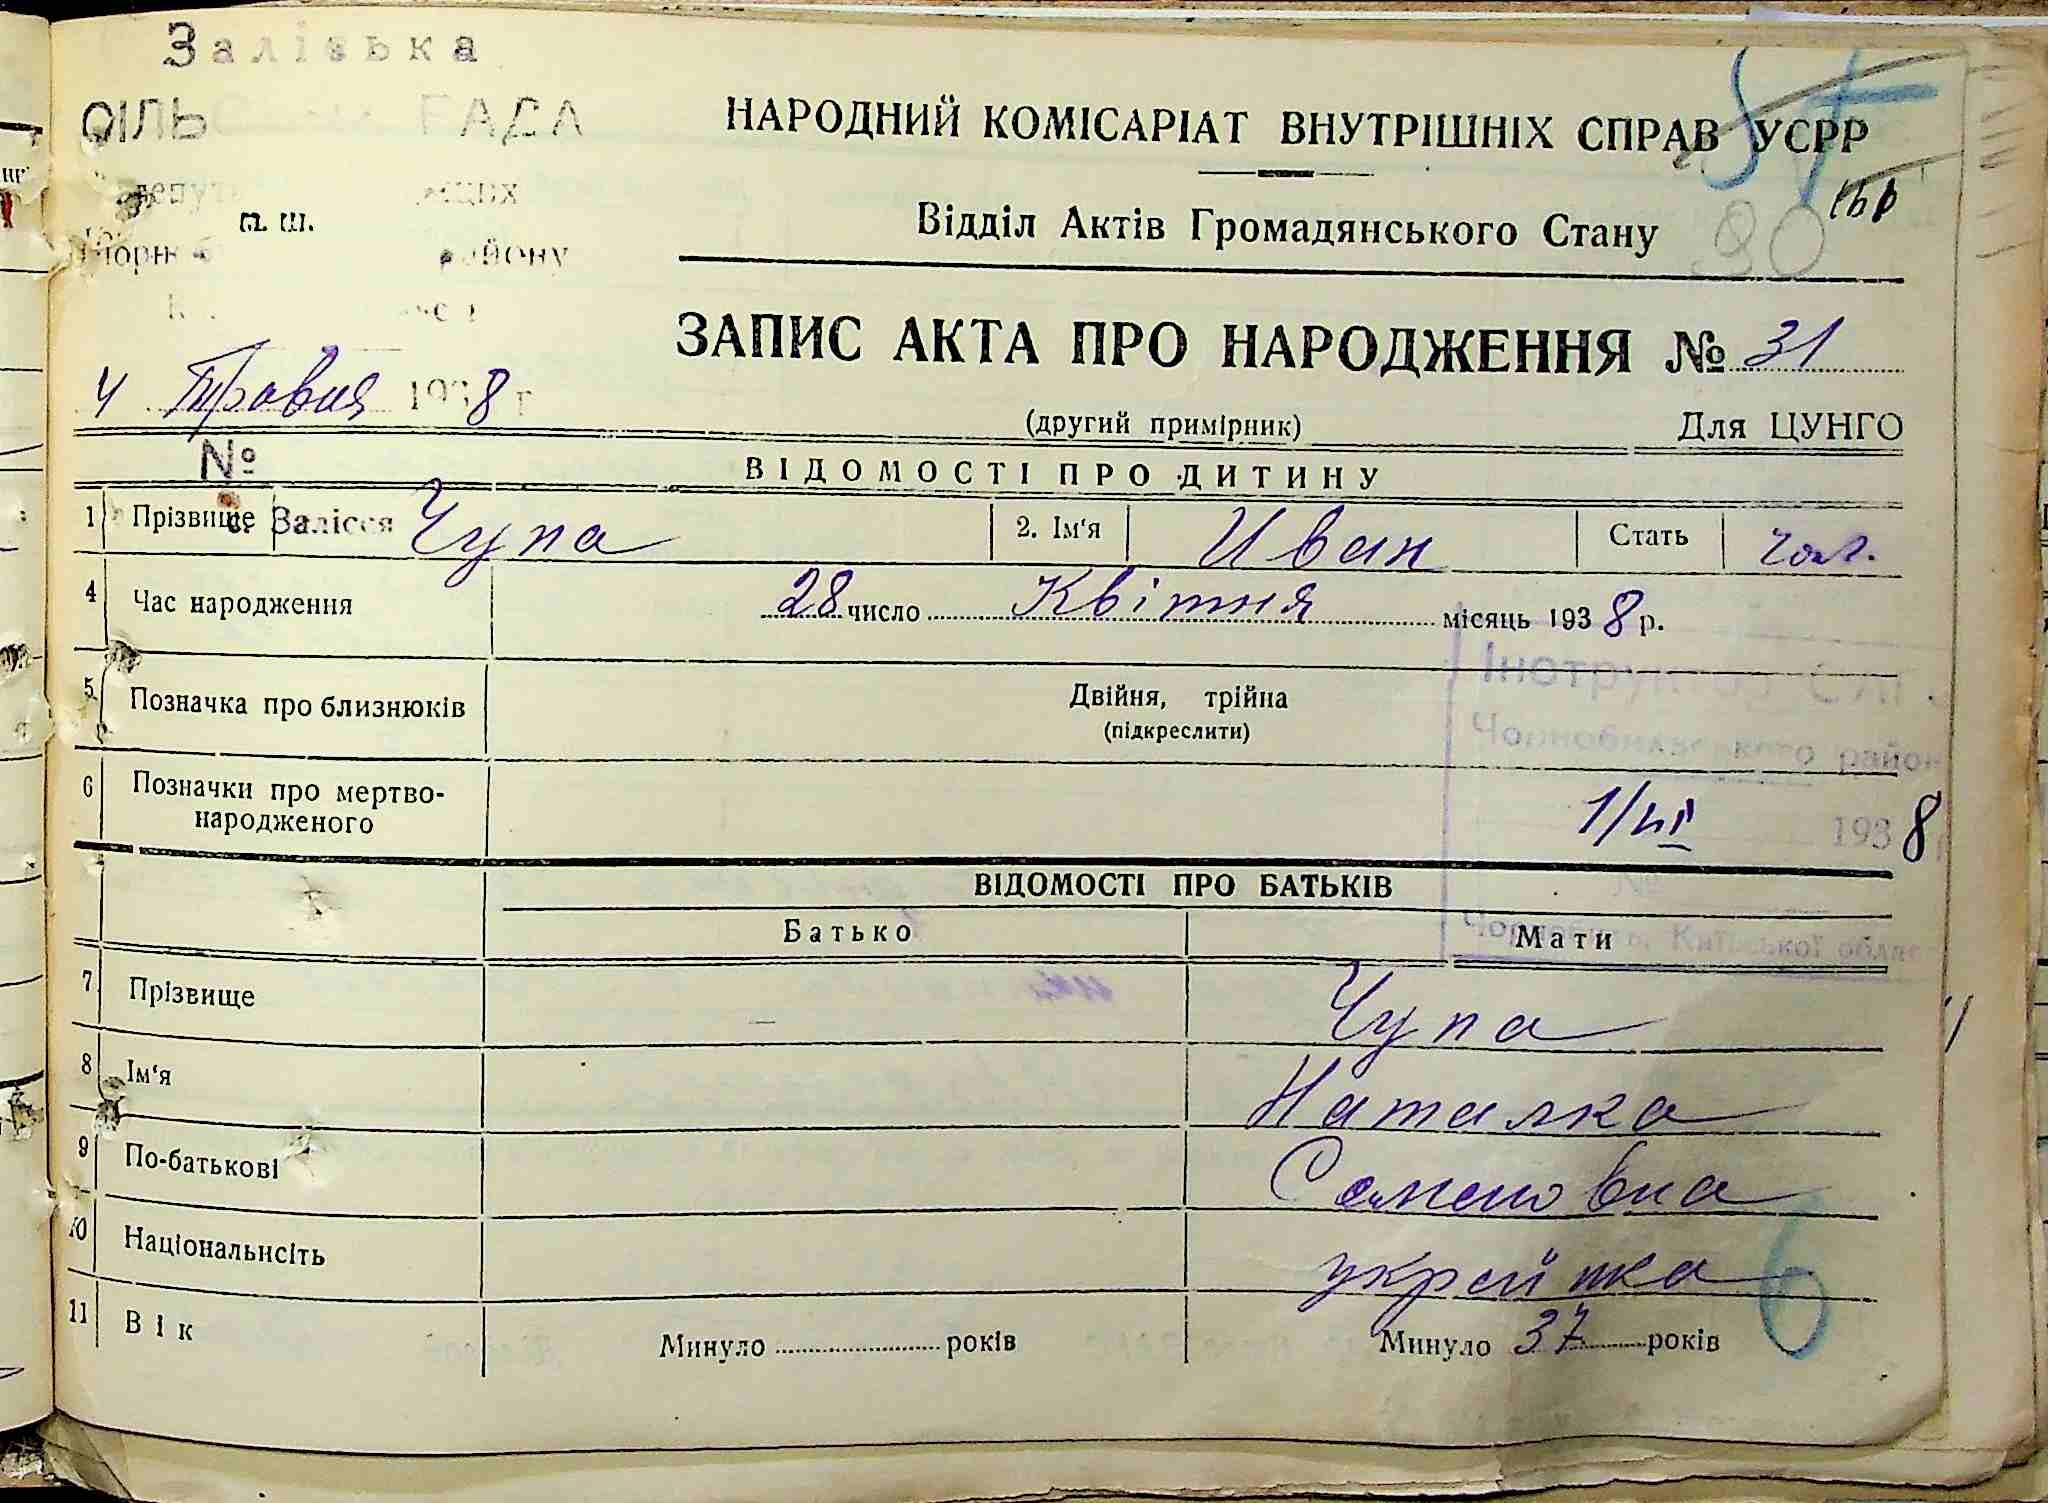 Заліська
СІЛЬСЬКА РАДА
п. ш.
району
НАРОДНИЙ КОМІСАРІАТ ВНУТРІШНІХ СПРАВ УСРР
Відділ Актів Громадянського Стану
90
ЗАПИС АКТА ПРО НАРОДЖЕННЯ № 31
4 Травня 1938 г
(другий примірник) Для ЦУНГО
№
ВІДОМОСТІ ПРО ДИТИНУ
с. Залісся
1 Прізвище Чупа 2. Ім'я Иван Стать чол.
4 Час народження 28 число Квітня місяць 1938 р.
5 Позначка про близнюків Двійня, трійна
(підкреслити)
Інструктор
Чорнобильського район
6 Позначки про мертво-
народженого
1938
№
Київської облас
ВІДОМОСТІ ПРО БАТЬКІВ
Батько Мати
7 Прізвище — Чупа
8 Ім'я Наталка
9 По-батькові Семеновна
10 Національнсіть українка
11 Вік Минуло років Минуло 37 років
6